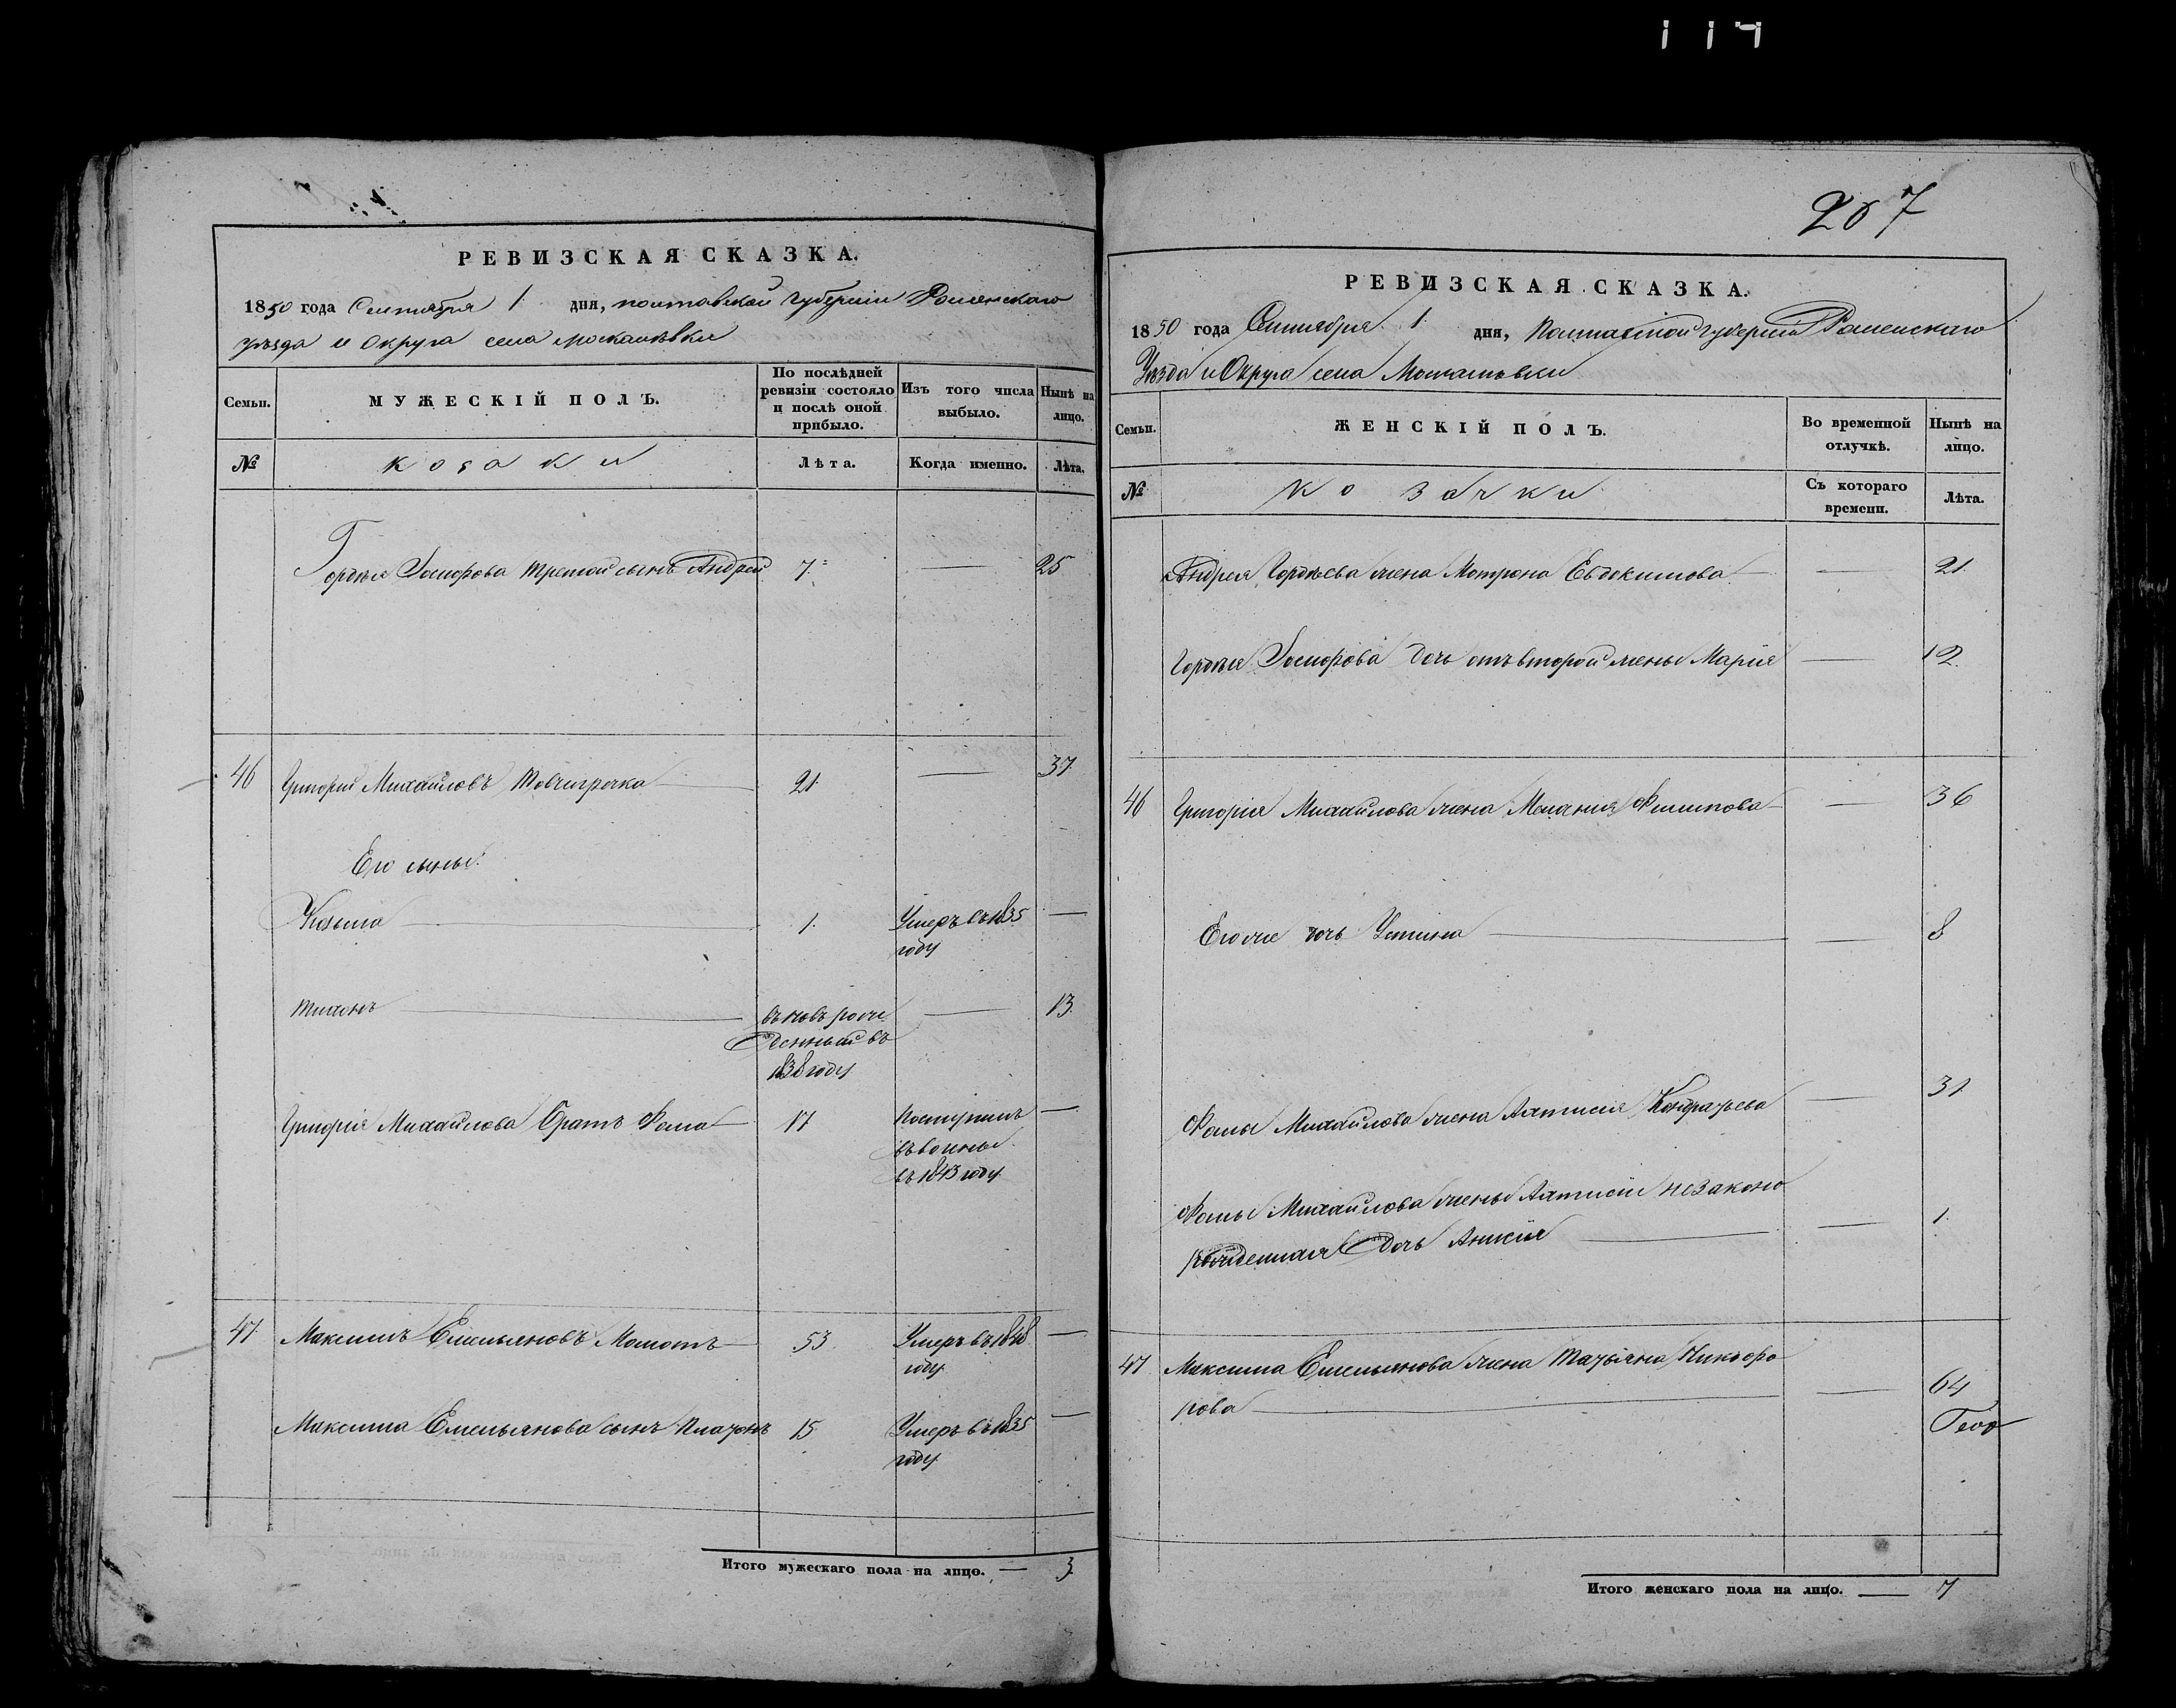 117
РЕВИЗСКАЯ СКАЗКА.
1850 года Сентября 1 дня, полтавской губернии Роменскаго
уѣзда и округа села москалѣвки
Семьи.
МУЖЕСКІЙ ПОЛЪ.
По послѣдней ревизіи состояло и послѣ оной прибыло.
Изъ того числа выбыло.
Нынѣ на лицо.
№
козаки
Лѣта.
Когда именно.
Лѣта.
Гордѣя Іосифова третой сынъ Андрей 7 — 25
46 Григорій Михайловъ Товчигречка 21 — 37
Его сыны
Козьма 1. Умеръ въ 1835 —
году
Тихонъ въновь рож — 13
денный въ
1838 году
Григорія Михайлова братъ Фома 17 Поступилъ —
въ воины
въ 1843 году
47 Максимъ Емельяновъ Момотъ 53 Умеръ въ 1848 —
году
Максима Емельянова сынъ Платонъ 15 Умеръ въ 1835 —
году
Итого мужескаго пола на лицо. — 3
207
РЕВИЗСКАЯ СКАЗКА.
1850 года Сентября 1 дня, Полтавской губерніи Роменскаго
Уѣзда и Округа села Москалювки
Семьи.
ЖЕНСКІЙ ПОЛЪ.
Во временной отлучкѣ.
Нынѣ на лицо.
№
козачки
Съ котораго времени.
Лѣта.
Андрея Гордѣева жена Мотрона Евдокимова — 21
Гордѣя Іосифова дочь отъ второй жены Марія — 12
46 Григорія Михайлова жена Меланія Филипова — 36
Его же дочь Устина — 8
Фомы Михайлова жена Алтисія Кондратьева — 31
Фомы Михайлова жены Алтисіи незаконо
рожденная дочь Анисія — 1.
47 Максима Емельянова жена Татьяна Никифо
рова — 64
Итого женскаго пола на лицо. — 7